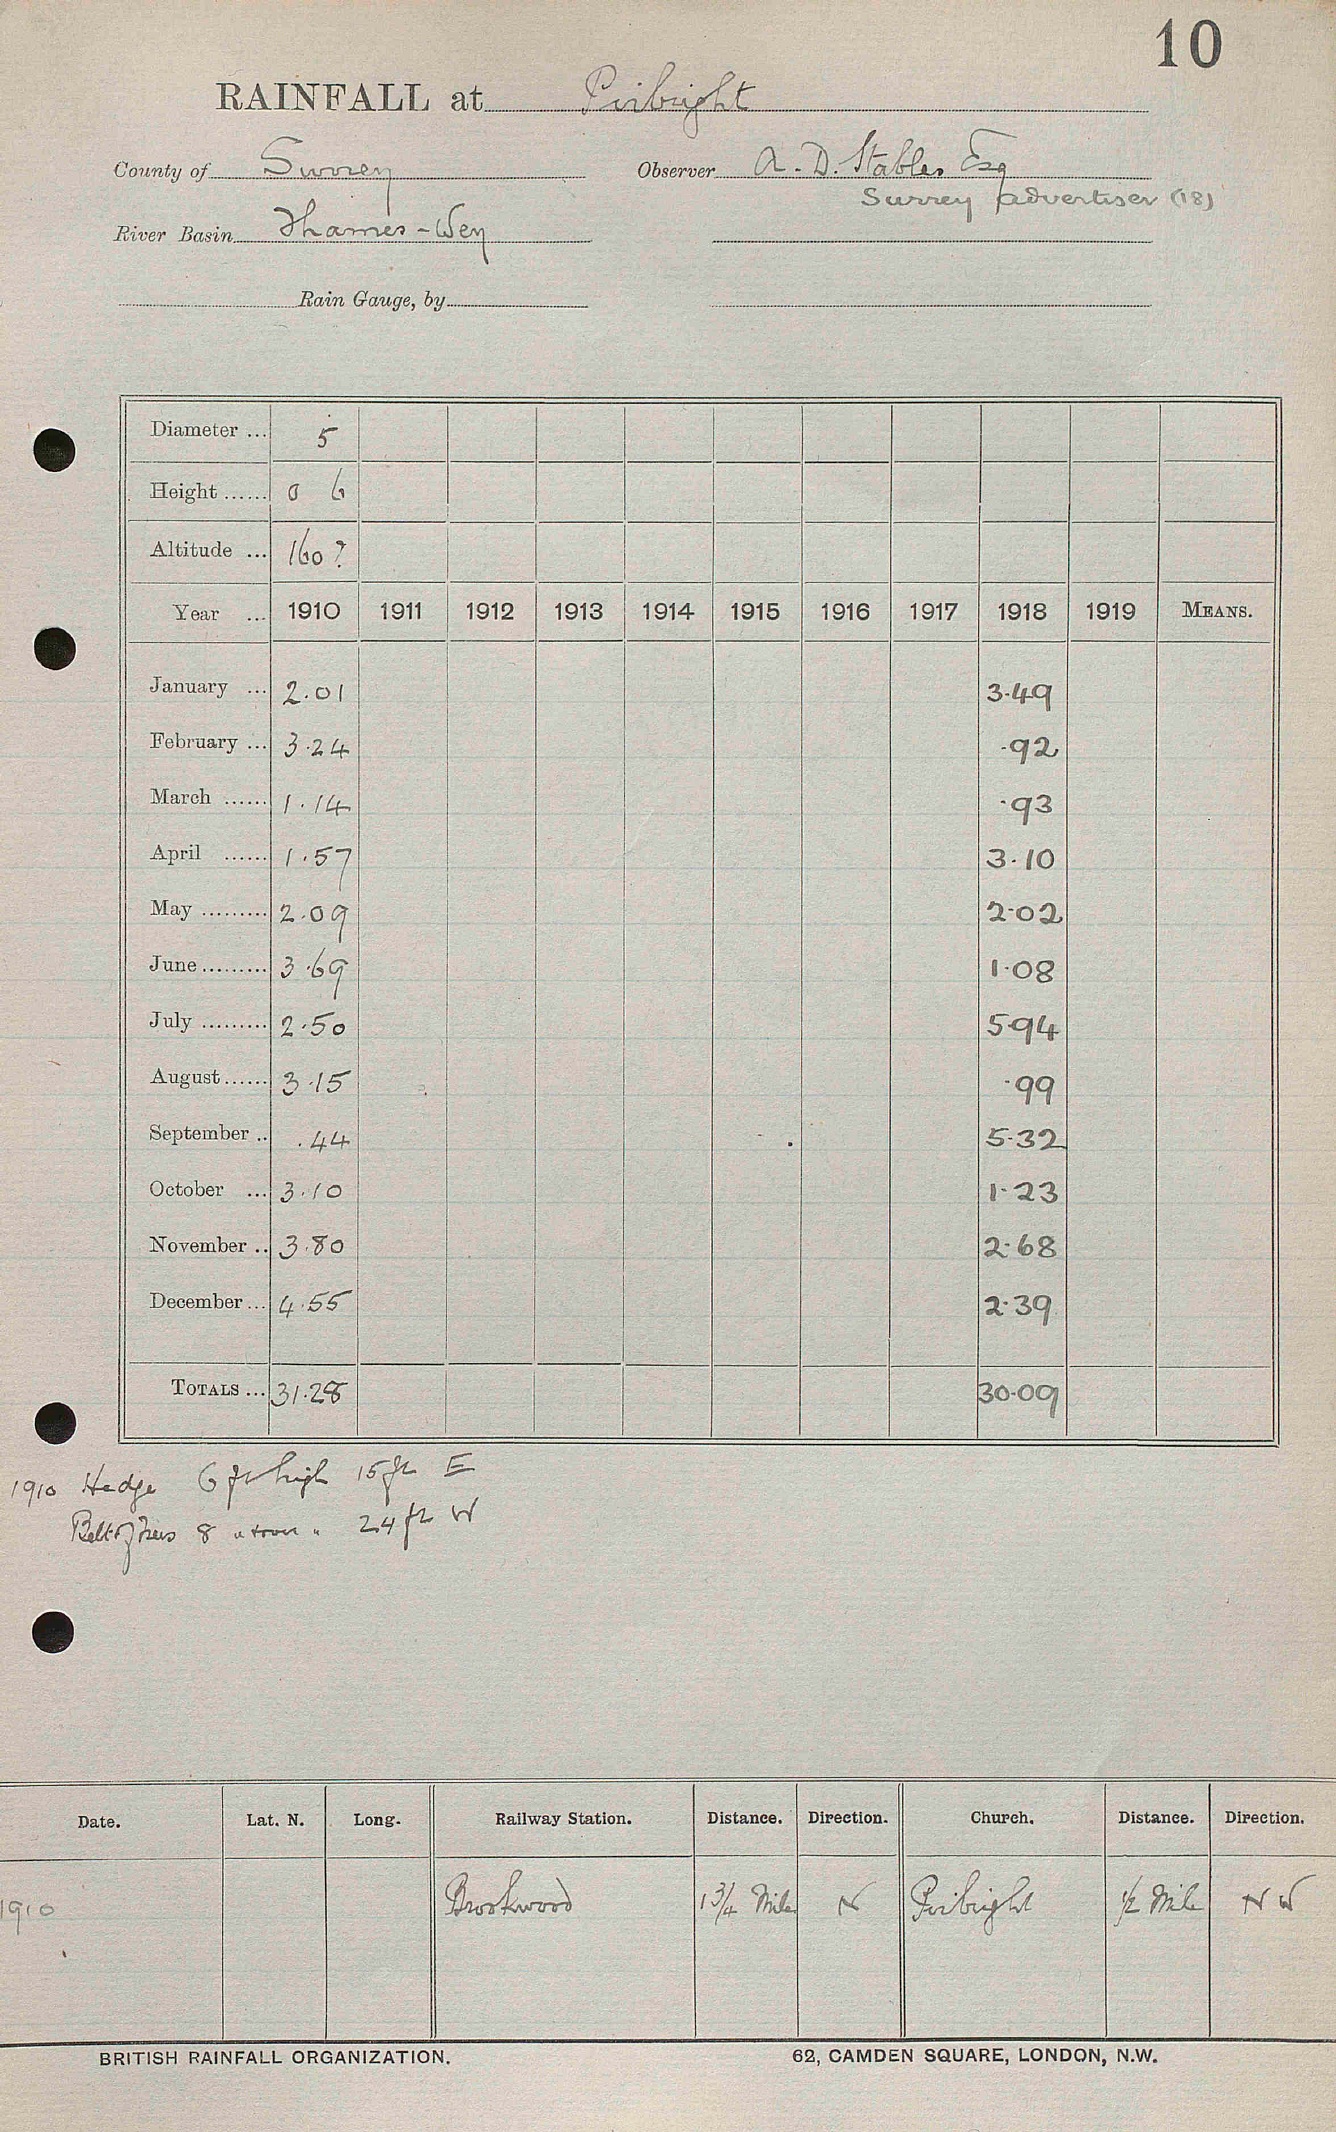 10
RAINFALL at Pirbright
County of Surrey Observer A. D. Stables Esq
Surrey Advertiser (18)
River Basin Thames-Wey
Rain Gauge, by
Diameter ... 5
Height ...... 0 6
Altitude ... 160?
Year ... 1910 1911 1912 1913 1914 1915 1916 1917 1918 1919 MEANS.
January ... 2.01 3.49
February ... 3.24 .92
March ...... 1.14 .93
April ...... 1.57 3.10
May ......... 2.09 2.02
June ......... 3.69 1.08
July ......... 2.50 5.94
August ...... 3.15 .99
September .. .44 5.32
October ... 3.10 1.23
November .. 3.80 2.68
December ... 4.55 2.39
TOTALS ... 31.28 30.09
1910 Hedge 6 ft high 15 ft E
Belt of Trees 8 " " 24 ft W
Date. Lat. N. Long. Railway Station. Distance. Direction. Church. Distance. Direction.
1910 Brookwood 1 3/4 Mile N Pirbright 1/2 Mile NW
BRITISH RAINFALL ORGANIZATION. 62, CAMDEN SQUARE, LONDON, N.W.